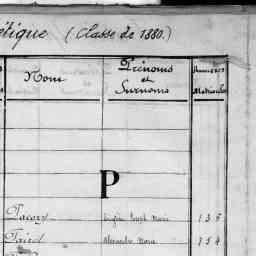 étique (Classe de 1880.)
Nom
Prénoms
et
Surnoms
Numéros
Matricules
P
Pacory
Joseph Marie 135
Alexandre Marie 154